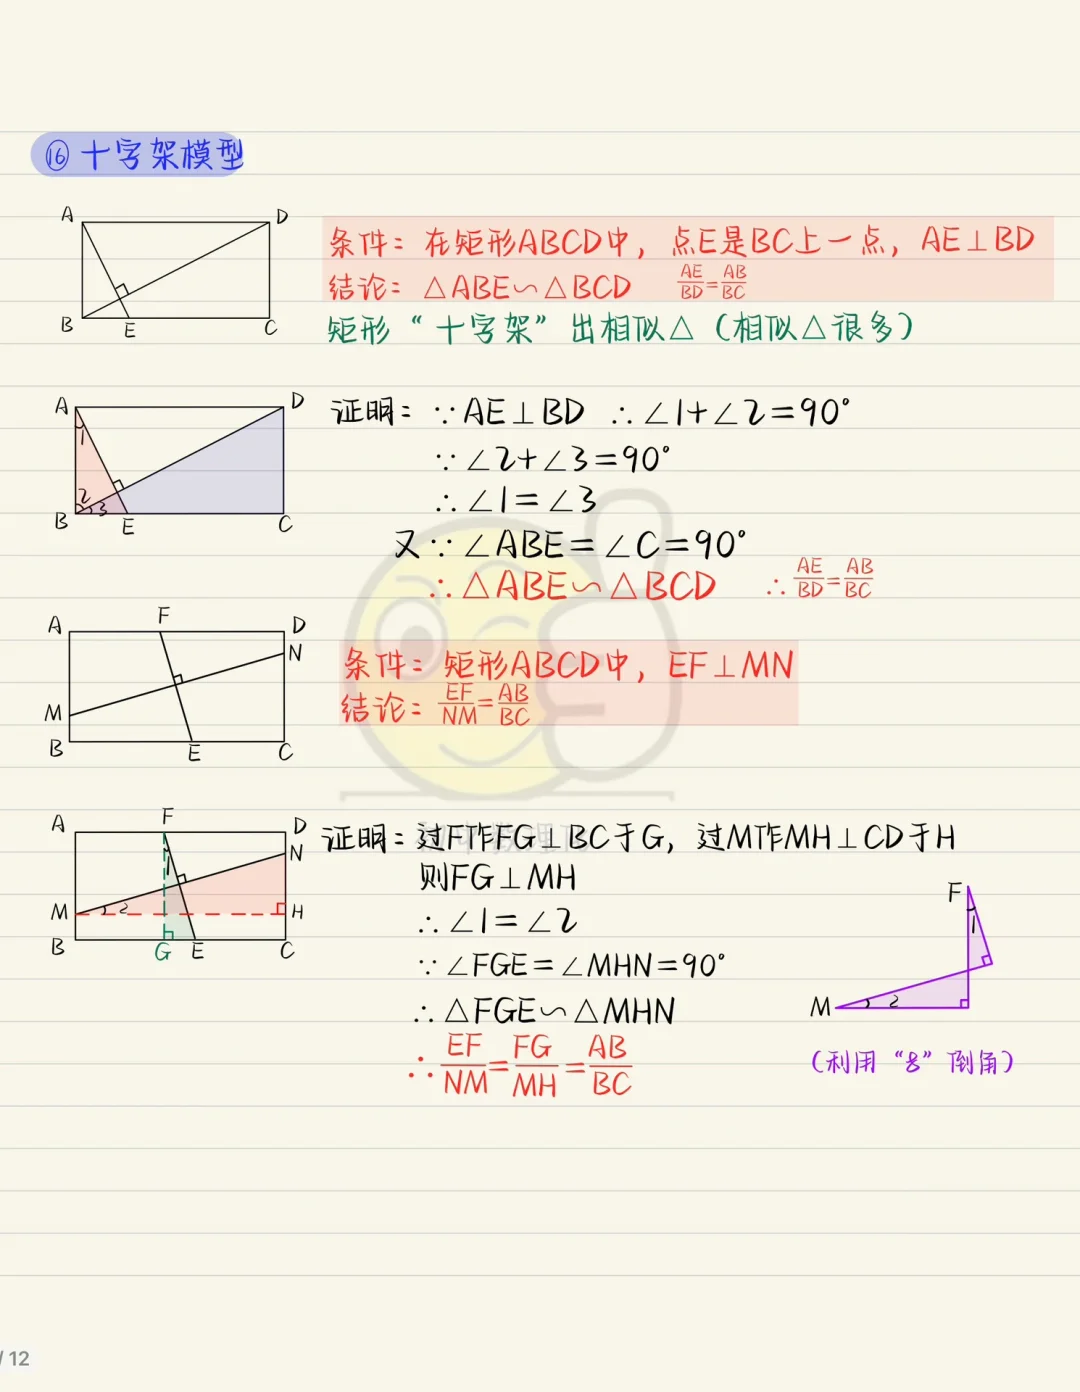 ⑯ 十字架模型
A D
B E C
条件：在矩形ABCD中，点E是BC上一点，AE⊥BD
结论：△ABE∽△BCD AE/BD=AB/BC
矩形“十字架”出相似△（相似△很多）
A D
1
2
3
B E C
证明：∵AE⊥BD ∴∠1+∠2=90°
∵∠2+∠3=90°
∴∠1=∠3
又∵∠ABE=∠C=90°
∴△ABE∽△BCD ∴AE/BD=AB/BC
A F D
N
M
B E C
条件：矩形ABCD中，EF⊥MN
结论：EF/NM=AB/BC
A F D
N
1
M 2 H
B G E C
证明：过F作FG⊥BC于G，过M作MH⊥CD于H
则FG⊥MH
∴∠1=∠2
∵∠FGE=∠MHN=90°
∴△FGE∽△MHN
∴EF/NM=FG/MH=AB/BC
F
1
M 2
（利用“8”倒角）
/ 12